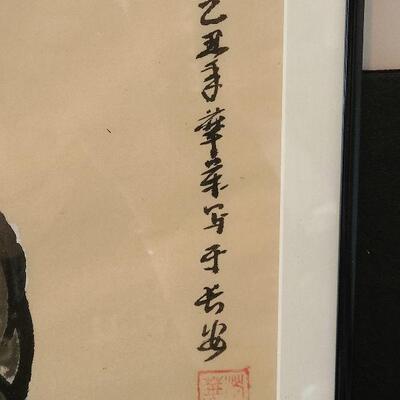 乙丑年華荣写于长安